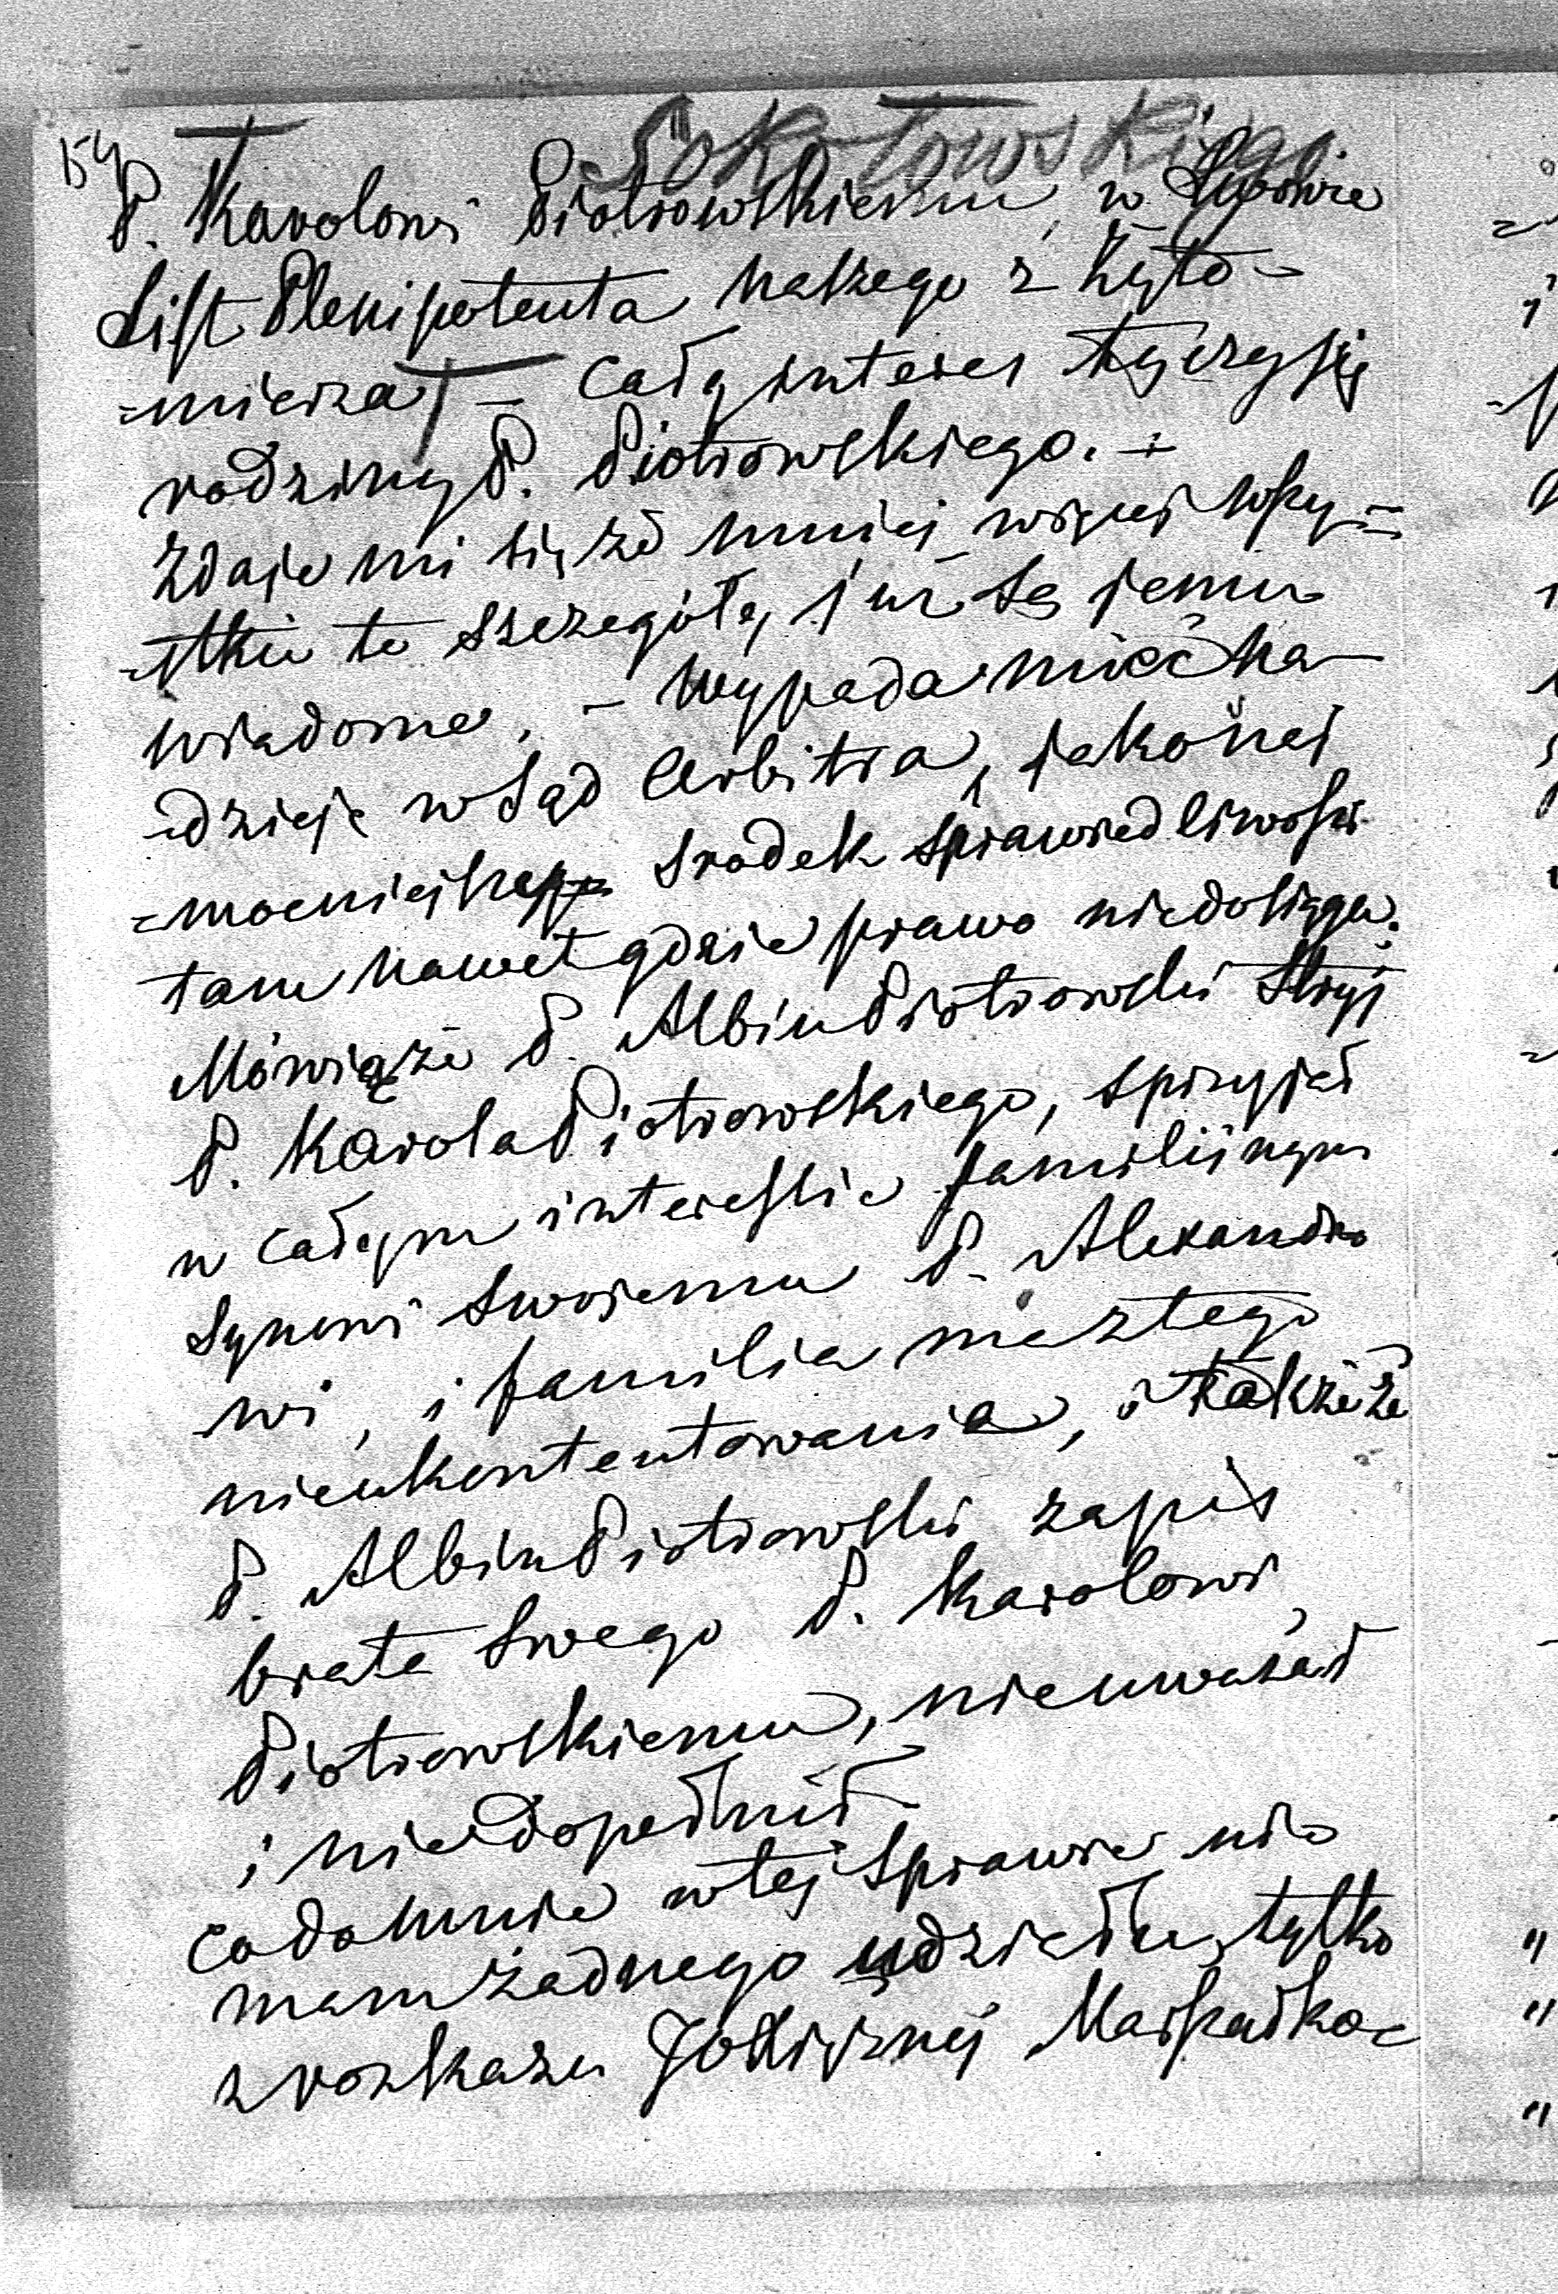 54
Sokołowskiego
P. Karolowi Piotrowskiemu, w Lwowie
List Plenipotenta naszego z Żyto-
=mierza, - cały interes tyczy się
rodziny P. Piotrowskiego. -
Zdaje mi się że mniej więcej wszy=
=stkie te szczegóły, już są jemu
wiadome, - Wypada mieć na-
=dzieję w Sąd Arbitra, jako naj
=mocniejszy srodek sprawiedliwości
tam nawet gdzie prawo niedosięga.
Mówią że P. Albin Piotrowski Stryj
P. Karola Piotrowskiego, sprzyjał
w całym interessie familijnym
Synowi swojemu P. Alexandro
wi, i familia ma z tego
nieukontentowania, i także że
P. Albin Piotrowski zapis
brata swego P. Karolowi
Piotrowskiemu, nieuważał
i niedopełnił -
co do mnie w tej sprawie nie
mam żadnego udziału, tylko
z rozkazu JO Xiężnej Marszałko=